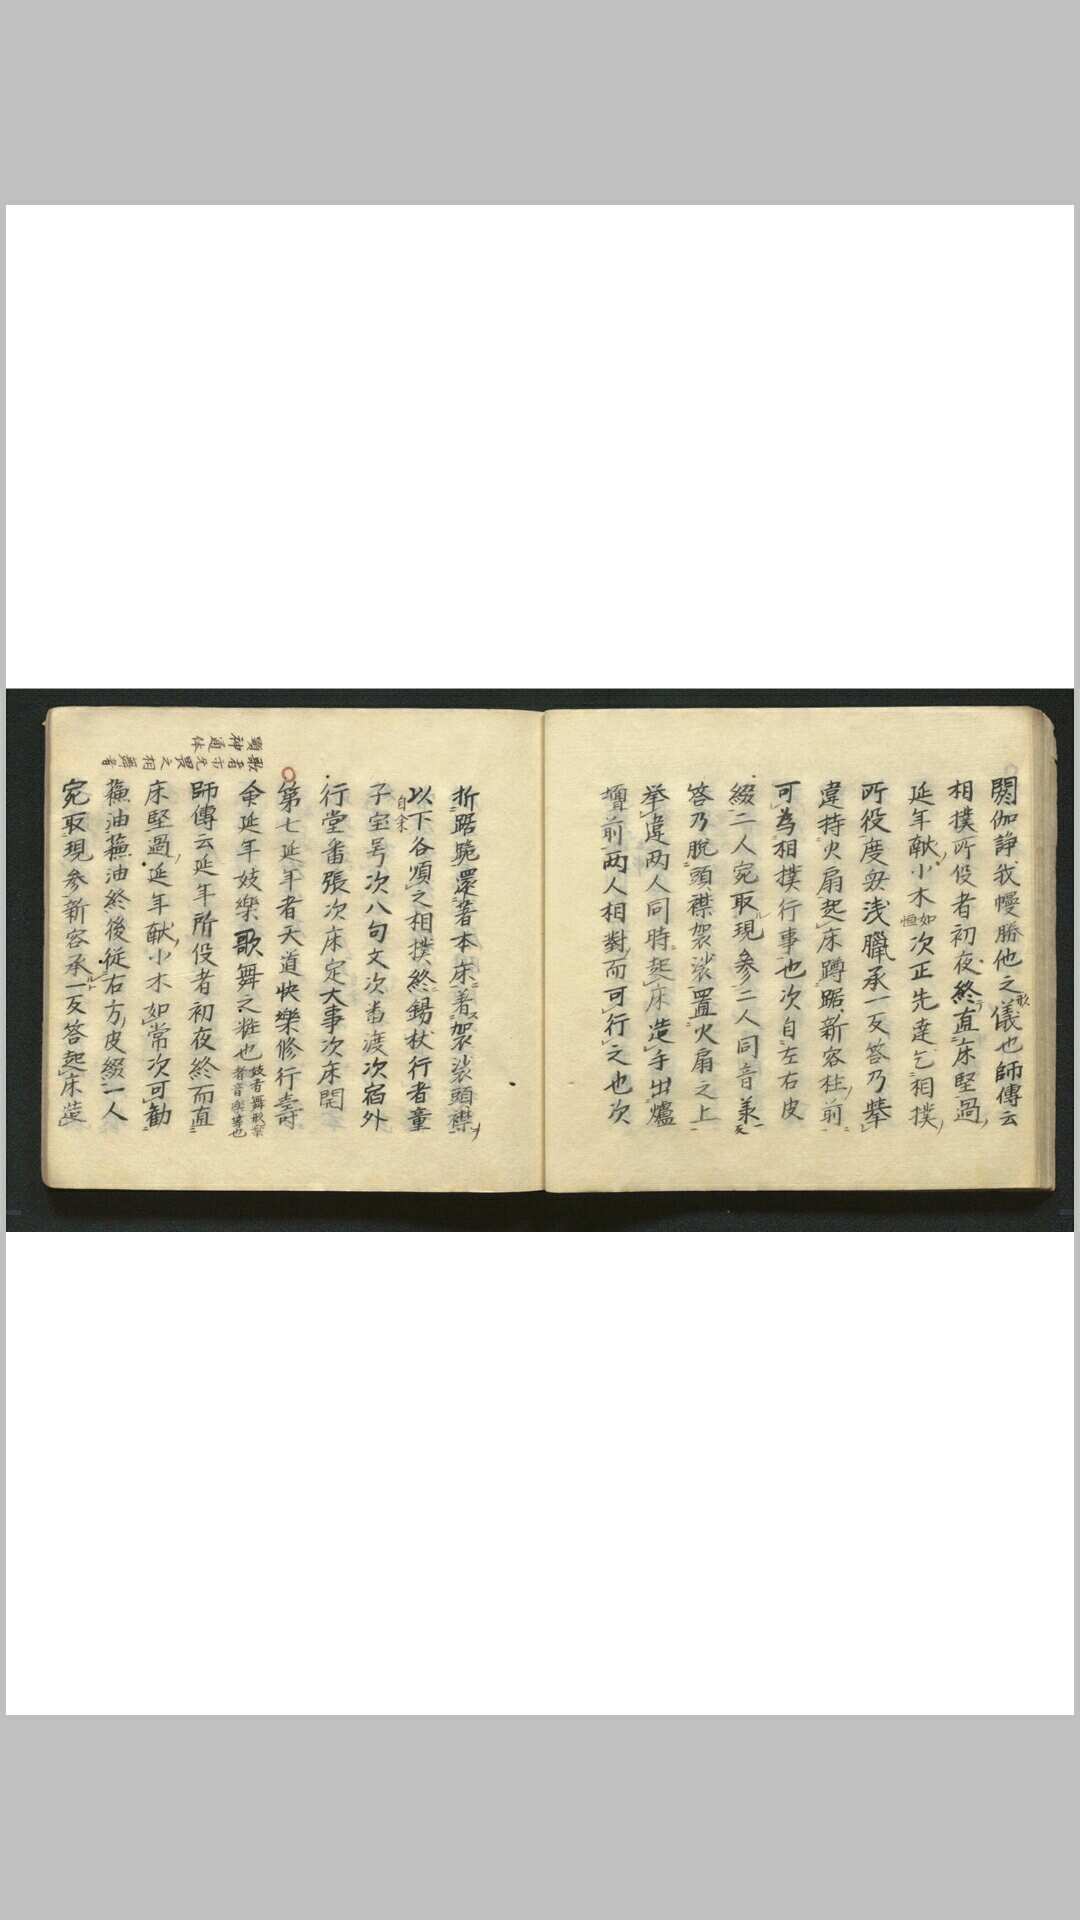 閼伽諍我慢勝他之儀也師傳云
相撲所役者初夜終直床堅過
延年献小木如恒次正先達乞相撲
所役度毎浅臈承一反答乃攀
違持火扇起床蹲踞新容柱前
可為相撲行事也次自左右皮
綴二人宛取現参二人同音美
答乃脱頭襟袈裟置火扇之上
挙違両人同時起床造手出爐
壇前両人相對而可行之也次
折踞跪還著本床着袈裟頭襟
以下各頌之相撲終錫杖行者童
子宝号次八句文次番渡次宿外
行堂番張次床定大事次床開
第七延年者天道快樂修行壽
命延年妓樂歌舞之粧也妓者舞歌楽者音楽等也
師傳云延年所役者初夜終而直
床堅過延年献小木如常次可勧
蘓油蘓油終後從右方皮綴一人
宛取現参新容承一反答起床造